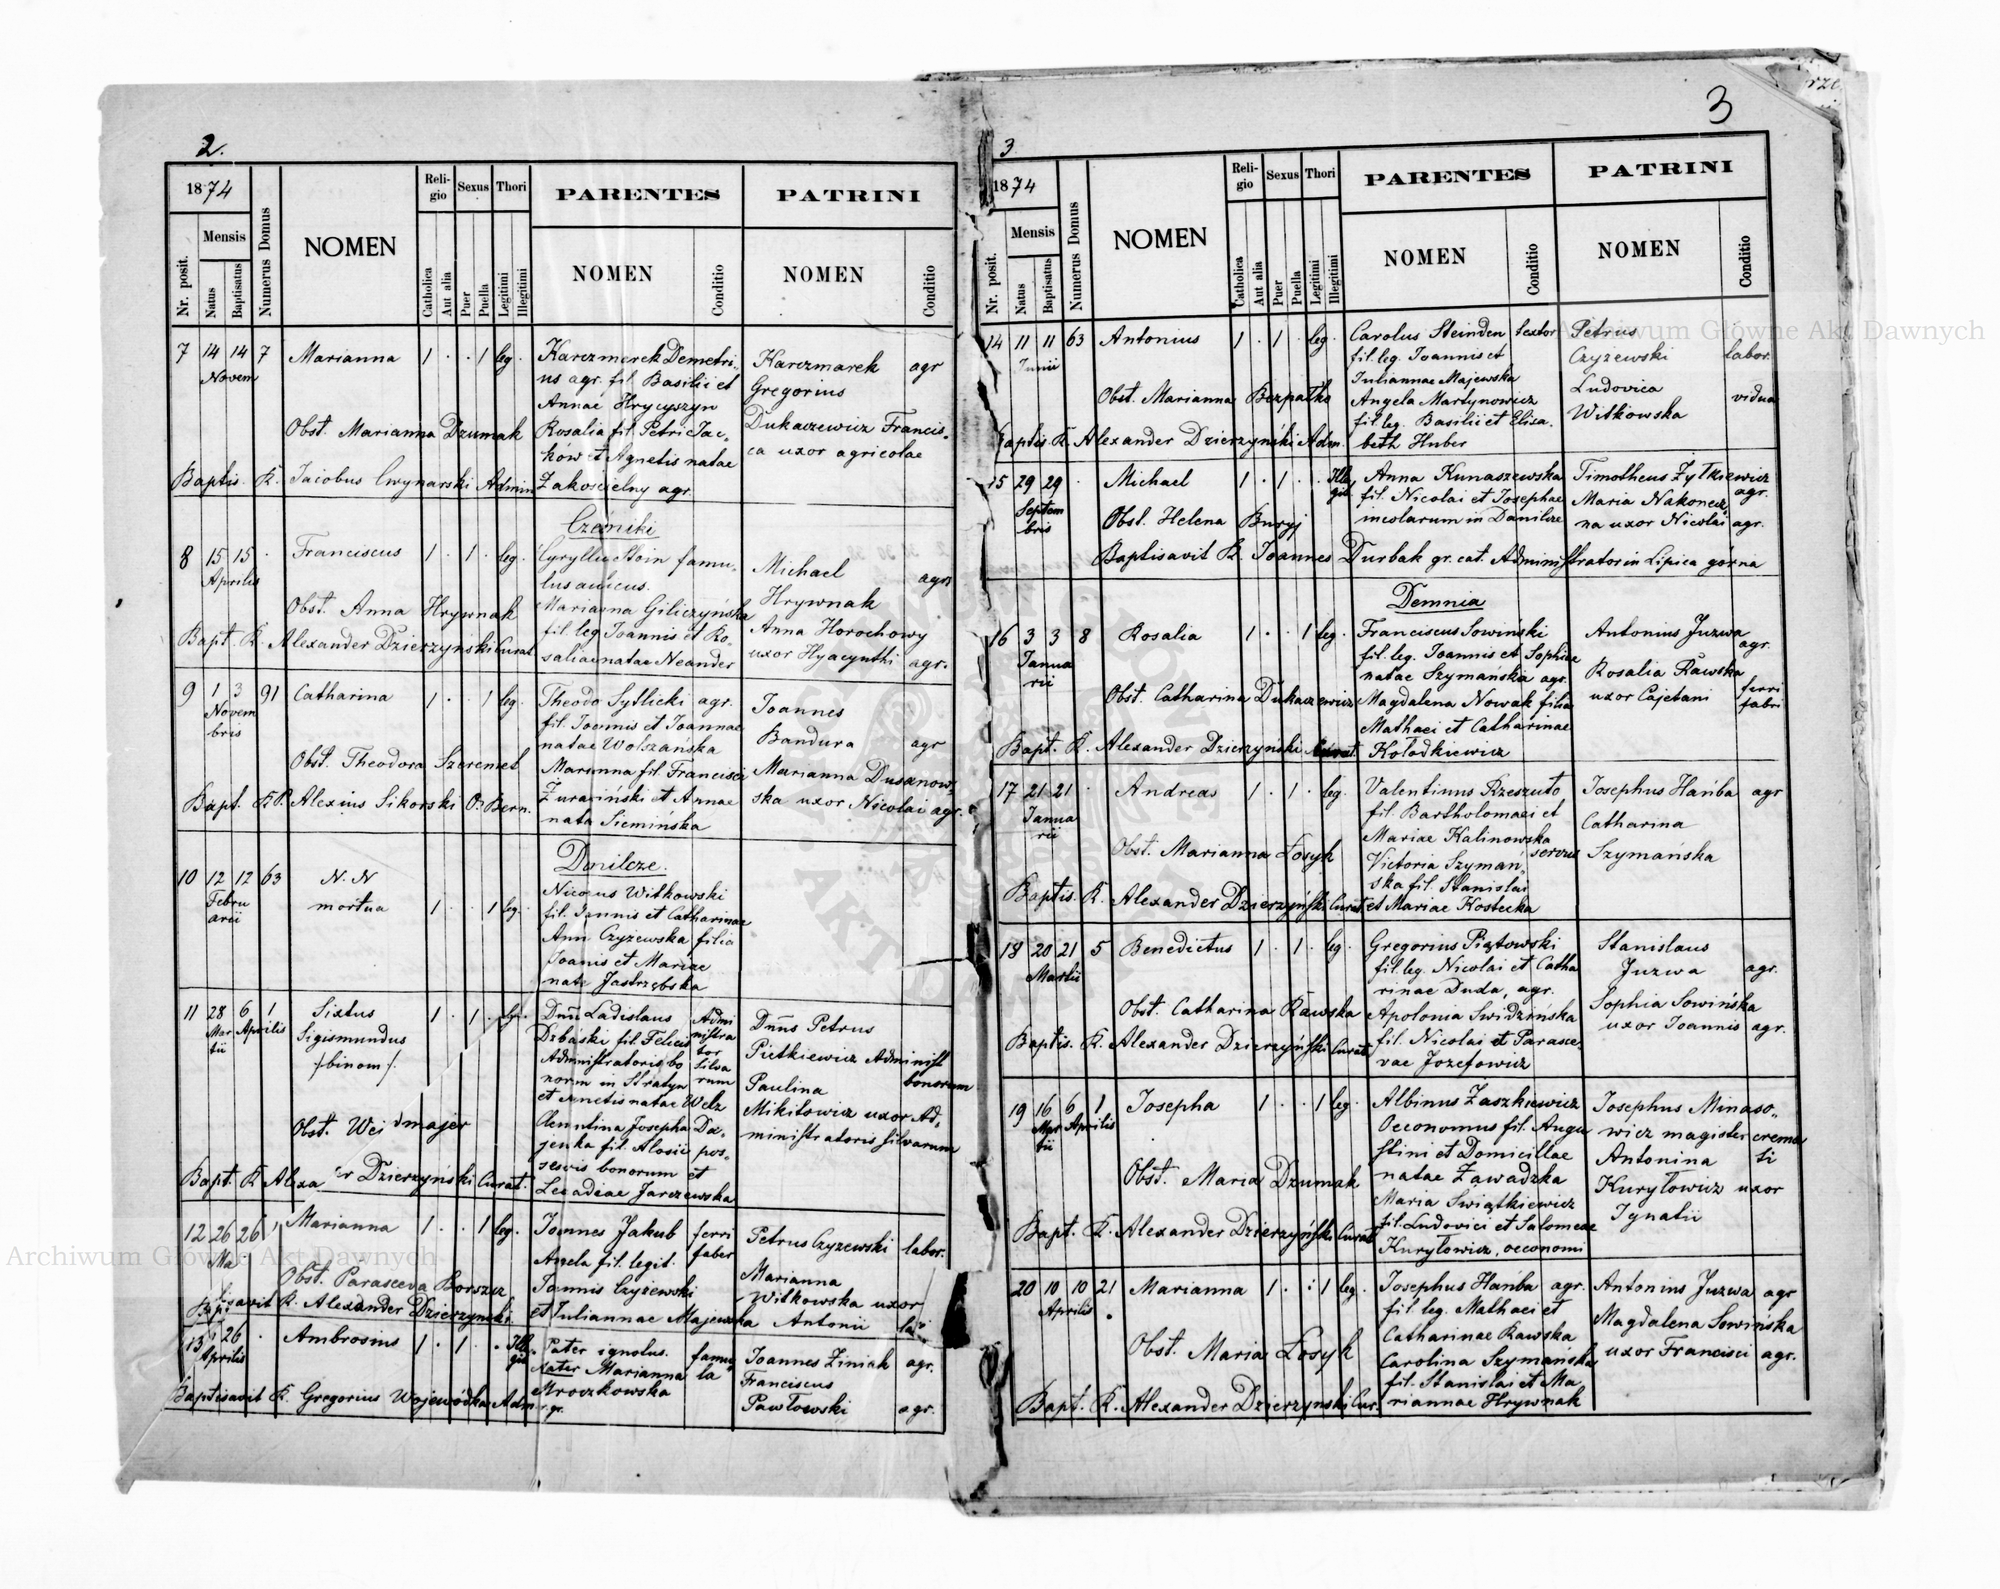 2.
1874
Nr. posit.
Mensis
Natus
Baptisatus
Numerus Domus
NOMEN
Religio
Catholica
Aut alia
Sexus
Puer
Puella
Thori
Legitimi
Illegitimi
PARENTES
NOMEN
Conditio
PATRINI
NOMEN
Conditio
7 14 14 7 Marianna 1 . . 1 leg. Karczmarek Demetri- Karczmarek agr
Novem us agr. fil. Basilii et Gregorius
Annae Hrycyszyn
Obst. Marianna Dzumak Rosalia fil. Petri Jac- Dukaczewicz Francis-
kow et Agnetis natae ca uxor agricolae
Baptis. K. Jacobus Cwynarski Admin Zakościelny agr.
8 15 15 . Franciscus 1 . 1 . leg. Cyryllus famu-
Aprilis lus Michael agr
Obst. Anna Hrywnak Marianna Giliczyńska Hrywnak
fil. leg Joannis et Ro- Anna Horochowy
Bapt. K. Alexander Dzierzyński Curat saliae natae Neander uxor Hyacynthi agr.
9 1 3 91 Catharina 1 . . 1 leg. Theodo Sytlicki agr. Joannes
Novem fil. Joannis et Joannae Bandura agr
bris natae Wolszańska
Obst. Theodora Szeremet Marianna fil. Francisci Marianna Dusanow-
Bapt. K. P. Alexius Sikorski O. Bern. et Annae ska uxor Nicolai agr.
nata Siemińska
10 12 12 63 N. N 1 . . 1 leg. Witkowski
Febru mortua fil. Joannis et Catharinae
arii Anna Czyżewska filia
Joanis et Mariae
nata Jastrzębska
11 28 6 1 Sixtus 1 . 1 . leg. Dnn Ladislaus Admi Dnns Petrus
Mar Aprilis Sigismundus fil. Felicis nistra Pietkiewicz Administ
tii /binom/. Administratoris bo tor bonorum
norum in Stratyn Silva Paulina
et natae Welz rum Mikitowicz uxor Ad-
Obst. Weidmajer Josepha ministratoris silvarum
fil. Aloisii pos-
sesvis bonorum et
Bapt. K Alexa r Dzierzyński Curat. Jarczewska
12 26 26 Marianna 1 . . 1 leg. Joannes Jakub ferri Petrus Czyzewski labor.
Angela fil. legit. faber
Obst. Parasceva Borszcz Joannis Czyżewski Marianna
Witkowska uxor
Baptisavit K. Alexander Dzierzynski et Juliannae Majewska Antonii
13 26 . Ambrosius 1 . 1 . Illegit. Pater ignotus. famu Joannes Ziniak agr.
Aprilis Mater Marianna la Franciscus
Baptisavit K. Gregorius Wojewódka Adm Mroczkowska Pawłowski agr.
3
3
1874
Nr. posit.
Mensis
Natus
Baptisatus
Numerus Domus
NOMEN
Religio
Catholica
Aut alia
Sexus
Puer
Puella
Thori
Legitimi
Illegitimi
PARENTES
NOMEN
Conditio
PATRINI
NOMEN
Conditio
14 11 11 63 Antonius 1 . 1 . leg. Carolus Steinden textor Petrus
Junii fil. leg. Joannis et Czyżewski labor.
Juliannae Majewska Ludovica
Obst. Marianna Bezpałko Angela Martynowicz Witkowska vidua
fil. leg. Basilii et Elisa-
Baptis K. Alexander Dzierzyński Adm. beth Huber
15 29 29 . Michael 1 . 1 . Illegit. Anna Kunaszewska Timotheus Żytkiewicz
Septem fil. Nicolai et Josephae Maria Nakonecz- agr.
bris Obst. Helena Buryj incolarum in Danilcze na uxor Nicolai agr.
Baptisavit K. Joannes Durbak gr. cat. Administrator in Lipica górna
Demnia
16 3 3 8 Rosalia 1 . . 1 leg. Franciscus Sowiński Antonius Juzwa
Janua fil. leg. Joannis et Sophiae agr.
rii natae Szymańska agr. Rosalia Rawska
Obst. Catharina Dukaczewicz Magdalena Nowak filia uxor Cajetani ferri
Mathaei et Catharinae fabri
Bapt. K. Alexander Dzierzyński Curat. Kołodkiewicz
17 21 21 . Andreas 1 . 1 . leg. Valentinus Rzeszuto Josephus Hańba agr
Janua fil. Bartholomaei et Catharina
rii Mariae Kalinowska
Obst. Marianna Łosyk Victoria Szymań- servus Szymańska
ska fil. Stanislai
Baptis. K. Alexander Dzierzyński Curat. et Mariae Kostecka
18 20 21 5 Benedictus 1 . 1 . leg Gregorius Piątowski Stanislaus
Martii fil. leg. Nicolai et Catha Juzwa agr.
rinae Duda, agr.
Obst. Catharina Rawska Apolonia Swidzińska Sophia Sowińska
fil. Nicolai et Parasce- uxor Joannis agr.
Baptis. K. Alexander Dzierzyński Curat. vae Jozefowicz
19 16 6 1 Josepha 1 . . 1 leg. Albinus Zaszkiewicz Josephus Minaso-
Mar Aprilis Oeconomus fil. Augu wicz magister crema
tii stini et Domicillae Antonina ti
Obst. Maria Dzumak natae Zawadzka Kuryłowicz uxor
Maria Swiątkiewicz Ignatii
Bapt. K. Alexander Dzierzyński Curat fil. Ludovici et Salomeae
Kuryłowicz, oeconomi
20 10 10 21 Marianna 1 . : 1 leg. Josephus Hańba agr. Antonius Juzwa agr
Aprilis fil leg. Mathaei et Magdalena Sowińska
Catharinae Rawska uxor Francisci agr.
Obst. Maria Łosyk Carolina Szymańska
fil. Stanislai et Ma
Bapt. K. Alexander Dzierzynski Cur. riannae Hrywnak
Archiwum Główne Akt Dawnych
Archiwum Główne Akt Dawnych